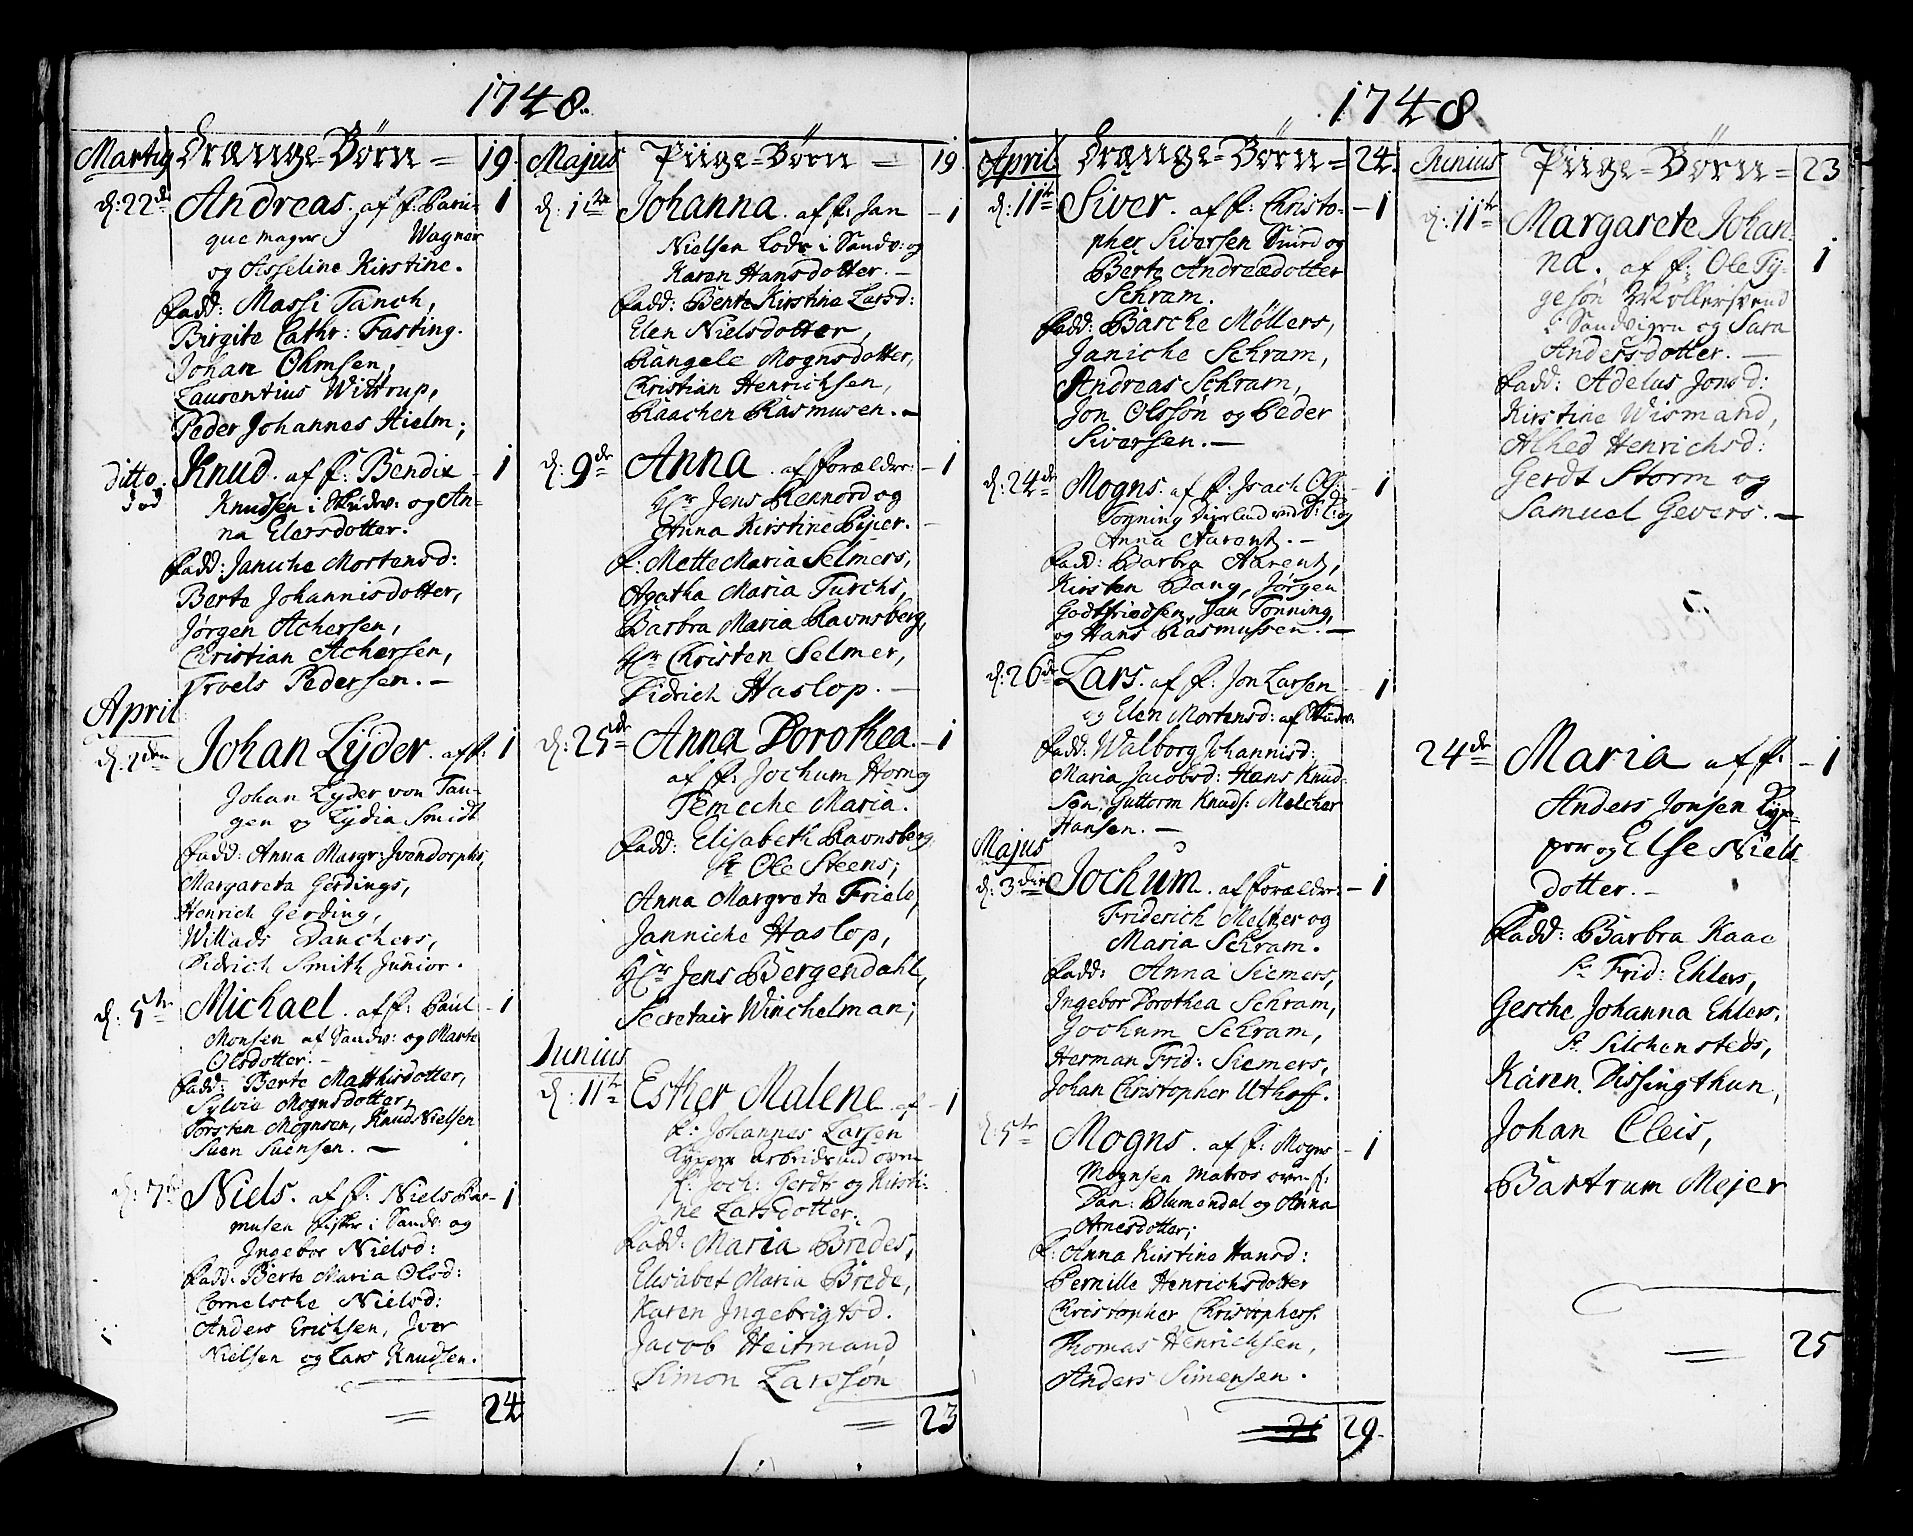 1748.
Martij Drænge-Børn = 19.
d: 22de Andreas. af f: Paru- 1
que mager Wagner
og Asseline Kirstine.
Fadd: Massi Tanch,
Birgite Cathr: Fasting.
Johan Ohmsen,
Laurentius Wittrup,
Peder Johannes Hielm;
ditto. Knud. af f: Bendix - 1
Knudsen i Skudev: og An-
na Elersdotter.
Fadd: Janiche Mortensd:
Berte Johannisdotter,
Jørgen Achersen,
Christian Achersen,
Troels Pedersen. -
April
Johan Lyder. af f: 1
Johan Lyder von Tan-
gen og Lydia Smidt
Fadd: Anna Margr: Jvendorphs,
Margareta Gerdings,
Henrich Gerding,
Willads Danchers,
Didrich Smith Junior.
d: 5te Michael. af f: Paul - 1
Monsen af Sandv: og Marte
Olsdotter. -
Fadd: Berte Matthisdotter,
Sylvie Mognsdotter,
Torsten Mognsen, Knud Nielsen
Suen Suensen. -
d: 7de Niels. af f: Niels Ras- 1
musen Fisker i Sandv: og
Ingebor Nielsd:
Fadd: Berte Maria Olsd:
Cornelsche Nielsd:
Anders Erichsen, Iver
Nielsen og Lars Knudsen.
= 24
Majus Piige-Børn = 19
d: 1ste Johanna. af f: Jan - 1
Nielsen Lods i Sandv: og
Karen Hansdotter. -
Fadd: Bente Kirstine Larsd:
Elen Nielsdotter,
Rangele Mognsdotter,
Christian Henrichsen,
Raachen Rasmusen. -
d: 9de Anna. af forældre: - 1
Hr Jens Rennord og
Anna Kirstine Piper. -
f: Mette Maria Selmers,
Agatha Maria Turchs,
Barbra Maria Ravnsberg,
Hr Christen Selmer,
Didrich Haslop. -
d: 25de Anna Dorothea. - 1
af f: Jochum Horn og
Temeche Maria.
Fadd: Elisabeth Ravnsberg
Sr Ole Steens;
Anna Margreta Friele,
Janniche Haslop,
Hr Jens Bergendahl,
Secretair Winchelman;
Junius
d: 11te Esther Malene af - 1
f: Johannes Larsen
arbeidsmd
Joch: Gerdt og Kirsti-
ne Larsdotter.
Fadd: Maria Bredes,
Elisabet Maria Brede,
Karen Ingebrigtsd.
Jacob Heitmand
Simon Larssøn
= 23
1748
April Drænge-Børn = 24.
d: 11te Siver. af f: Christo- - 1
pher Siversen Suird og
Berte Andreædotter
Schram.
Fadd: Barche Møllers,
Janiche Schram,
Andreas Schram,
Jon Olssøn og Peder
Siversen. -
d: 24de Mogns. af f: Isach Ols: - 1
Tonning og
Anna Aarentz. -
Fadd: Barbra Aarentz,
Kirsten Bang, Jørgen
Godtfriedsen, Jan Tonning,
og Hans Rasmussen. -
d: 26de Lars. af f: Jon Larsen - 1
og Elen Mortensd: af Skudev:
Fadd: Walborg Johannisd:
Maria Jacobsd: Hans Knud-
sen: Guttorm Knuds: Melcher
Hansen. -
Majus
d: 3die Jochum. af forældre: - 1
Friderich Meltzer og
Maria Schram.
Fadd: Anna Siemers,
Ingebor Dorothea Schram,
Jochum Schram,
Herman Frid: Siemers,
Johan Christopher Uthoff.
d: 5te Mogns. af f: Mogns - 1
Mognsen Matros
Dan: Blumendal og Anna
Arnesdotter;
f: Anna Kirstine Hansd:
Pernille Henrichsdotter
Christopher Christophers:
Thomas Henrichsen,
Anders Simensen.
29.
Junius Piige-Børn = 23
d: 11te Margarete Johan-
na. af f: Ole Ty- 1
gesøn Møllersvend
i Sandvigen og Sara
Andersdotter. -
Fadd: Adelus Jonsd:
Kirstine Wismand,
Alhed Henrichsd:
Gerdt Storm og
Samuel Gevers. -
24de Maria af f: - 1
Anders Jonsen Kyp-
per og Else Niels
dotter. -
Fadd: Barbra Kaae
Sr Frid: Ehlers,
Gesche Johanna Ehlers,
Sr Silchensteds,
Karen Dissingthun,
Johan Cleis,
Bartrum Mejer
= 25